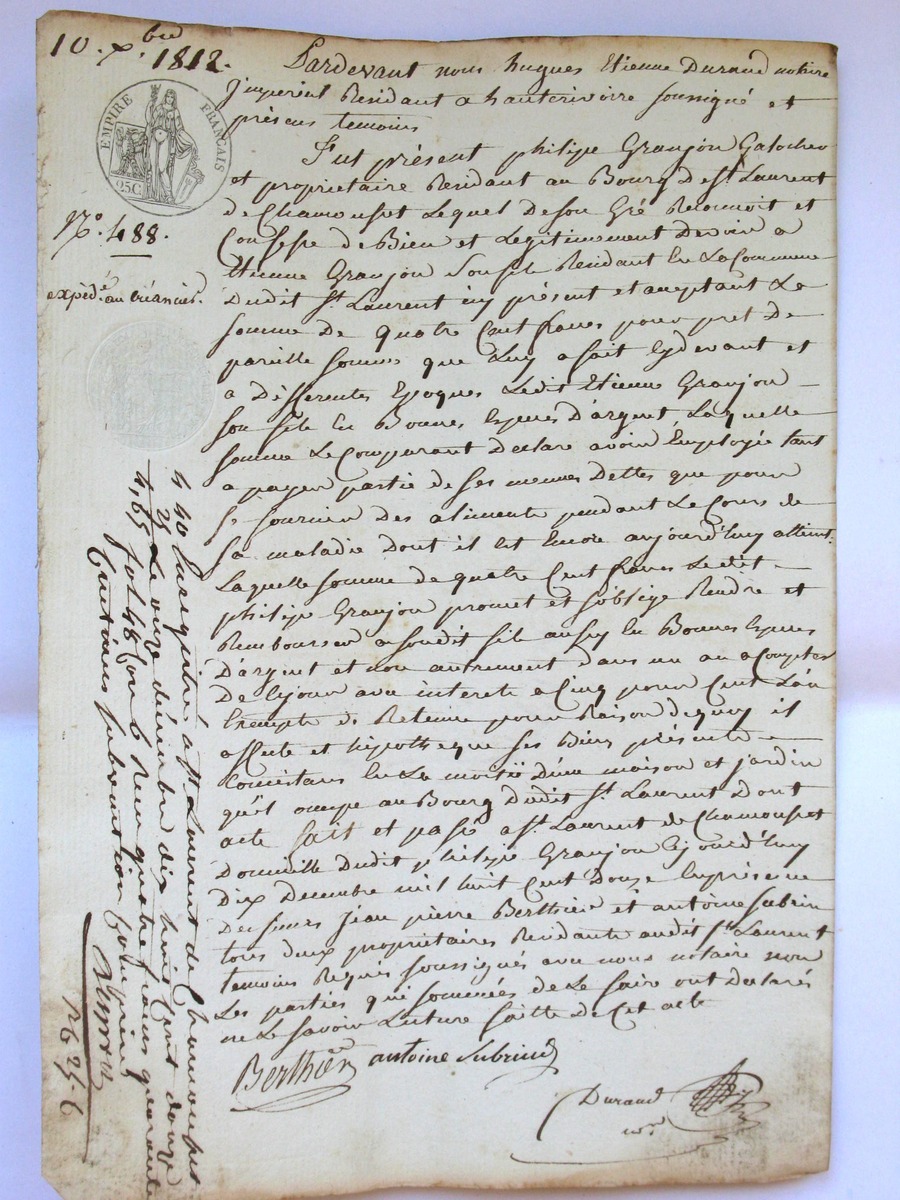 10. xbre 1812.
EMPIRE FRANÇAIS
25C
N°. 488.
expédié au créancier.
Pardevant nous hugues Etienne Durand notaire
imperial Residant a hauterivoire soussigné et
présens temoins
Fut présent philipe Granjon Galocher
et propriétaire Residant au Bourg de st. Laurent
de Chamousset Lequel de son Gré Reconnoit et
Confesse de Bien et Legitimement Devoir a
Etienne Granjon son fils Residant en La Commune
Dudit st. Laurent icy présent et acceptant La
somme De quatre Cent francs pour pret De
pareille somme que Luy a fait cydevant et
a Differentes Epoques Ledit Etienne Granjon
son fils En Bonnes Espces D'argent Laquelle
somme Le Comparant Declare avoir Employée tant
a payer partie de ses menues Dettes que pour
se fournir Des alimente pendant Le Cours de
sa maladie Dont il est Encore aujourd'huy atteint.
Laquelle somme de quatre Cent francs Ledit
philipe Granjon promet et s'oblige Rendre et
Rembourser a sondit fils aussy En Bonnes Espces
D'argent et non autrement dans un an a Compter
De Cejour avec interets a Cinq pour Cent L'an
Exempte de Retenue pour Raison Dequoy il
affecte et hipotheque ses Biens présents
Consistans En La moitié D'une maison et jardin
qu'il occupe au Bourg Dudit st. Laurent Dont
acte fait et passé a st. Laurent de Chamousset
Domicille Dudit philipe Granjon Cejourd'huy
Dix Decembre mil huit Cent Douze En présence
Des sieurs jean pierre Berthier et antoine subrin
tous deux propriétaires Residants audit st. Laurent
temoins Requis soussignés avec nous notaire non
Les parties qui sommées de Le faire ont Declarés
ne Le savoir Lecture faitte De Cet acte
Berthier antoine Subrin
Durand
nore
4 40 Enregistré a st. Laurent de Chamousset
Le onze décembre dix huit Cent douze
4,65 fol 46 Reçu quatre francs quarante
Centimes subvention